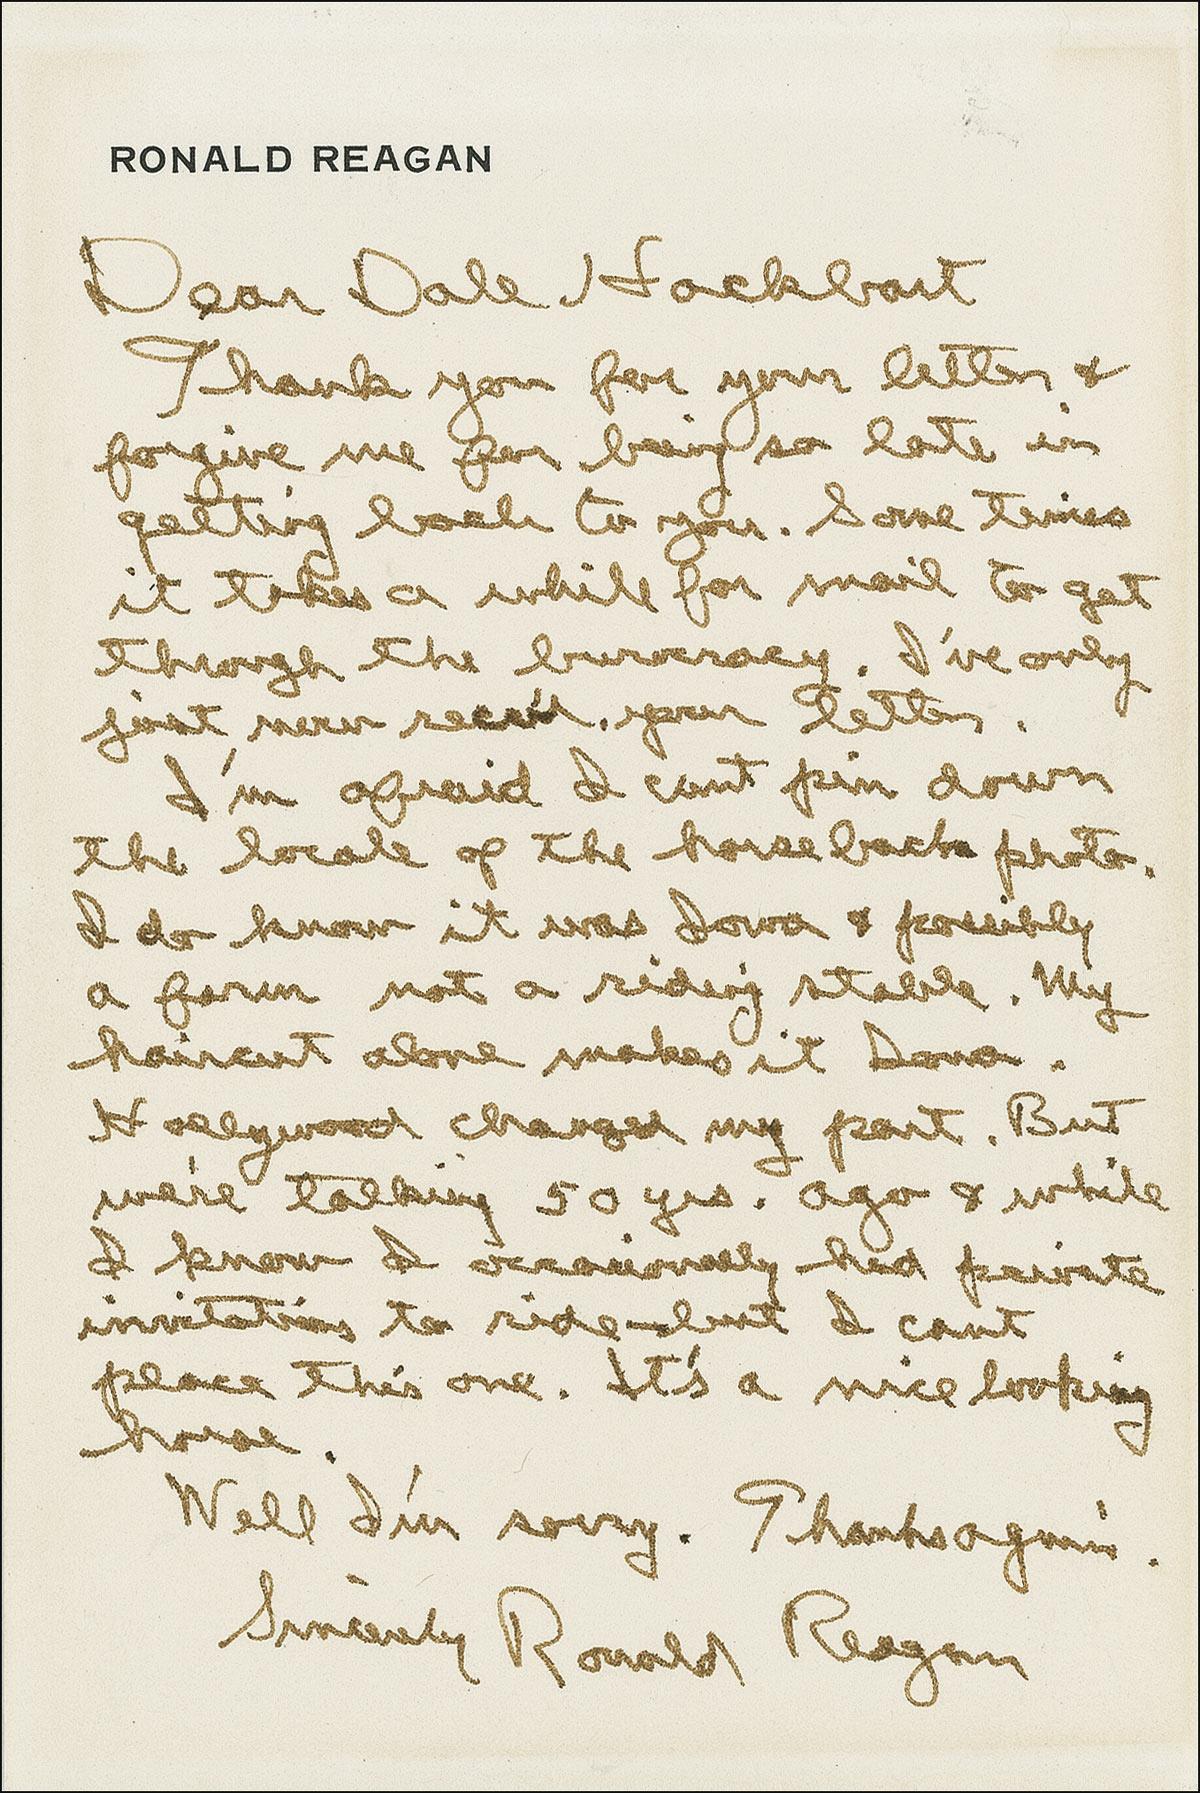 RONALD REAGAN
Dear Dale Hackbart
Thank you for your letter &
forgive me for being so late in
getting back to you. Some times
it takes a while for mail to get
through the burocracy. I've only
just now rec'd. your letter.
I'm afraid I cant pin down
the locale of the horseback photo.
I do know it was Iowa & possibly
a farm not a riding stable. My
haircut alone makes it Iowa.
Hollywood changed my part. But
we're talking 50 yrs. ago & while
I know I occasionally had private
invitations to ride – but I cant
place this one. It's a nice looking
horse.
Well I'm sorry. Thanks again.
Sincerely Ronald Reagan